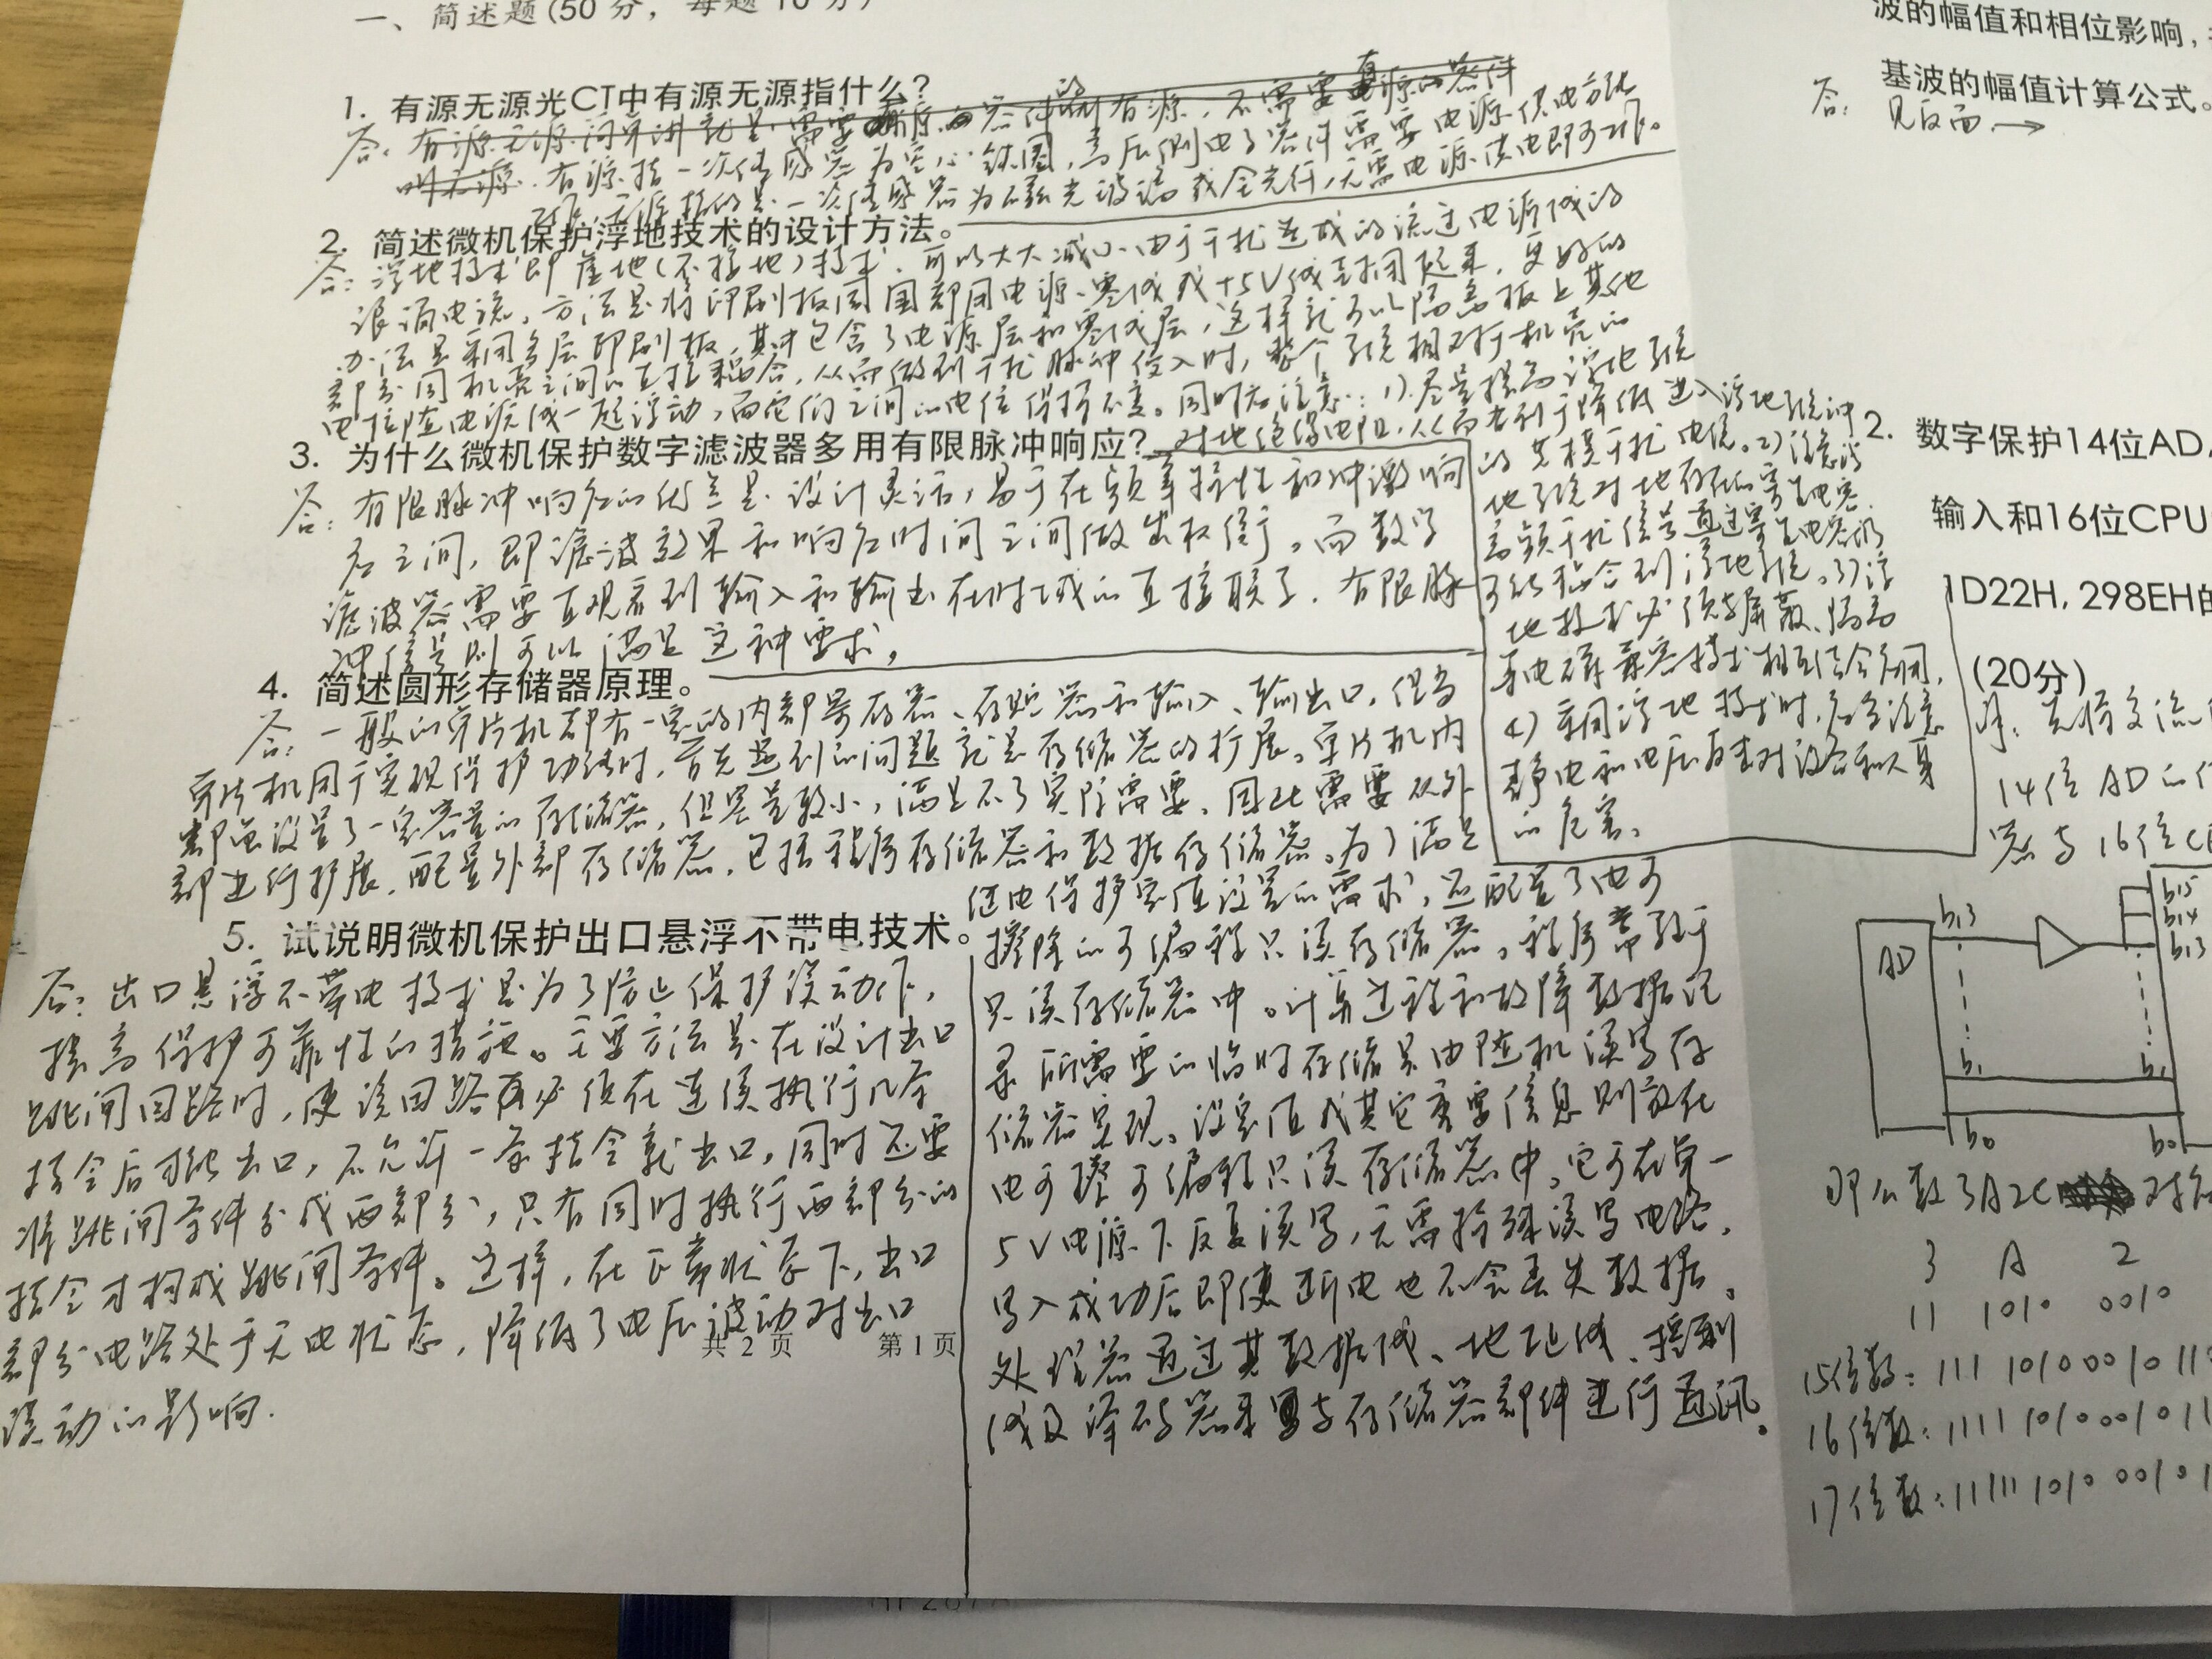 一、简述题(50分，每题10分)
1. 有源无源光CT中有源无源指什么?
答: 有源无源简单讲就是需要电源的器件叫有源，不需要电源的器件
叫无源. 有源指一次传感器为空心线圈，高压侧电子器件需要电源供电方能
无源指的是一次传感器为磁光玻璃或全光纤，无需电源供电即可工作。
2. 简述微机保护浮地技术的设计方法。
答: 浮地技术即悬地(不接地)技术，可以大大减小由于干扰造成的流过电源线的
浪涌电流，方法是将印刷板周围都用电源零线或+5V线封闭起来，更好的
办法是采用多层印刷板，其中包含了电源层和零线层，这样就可以隔离板上其他
部分同机壳之间的直接耦合，从而做到干扰脉冲侵入时，整个系统相对于机壳的
电位随电源线一起浮动，而它们之间的电位保持不变。同时应注意: 1)尽量提高浮地系统
对地绝缘电阻，从而有利于降低进入浮地系统冲
的共模干扰电流。2)注意浮
地系统对地存在的寄生电容
高频干扰信号通过寄生电容仍
可能耦合到浮地系统。3)浮
地技术必须与屏蔽、隔离
等电磁兼容技术相互结合应用，
4)采用浮地技术时，应当注意
静电和电压反击对设备和人身
的危害。
3. 为什么微机保护数字滤波器多用有限脉冲响应?
答: 有限脉冲响应的优点是设计灵活，易于在频率特性和冲激响
应之间，即滤波效果和响应时间之间做出权衡。而数字
滤波器需要直观看到输入和输出在时域的直接联系. 有限脉
冲信号则可以满足这种要求，
4. 简述圆形存储器原理。
答: 一般的单片机都有一定的内部寄存器、存贮器和输入、输出口，但当
单片机用于实现保护功能时，首先遇到的问题就是存储器的扩展。单片机内
部虽设置了一定容量的存储器，但容量较小，满足不了实际需要，因此需要从外
部进行扩展，配置外部存储器，包括程序存储器和数据存储器。为了满足
继电保护定值设置的需求，还配置了电可
擦除的可编程只读存储器。程序常驻于
只读存储器中。计算过程和故障数据记
录所需要的临时存储是由随机读写存
储器实现。设定值或其它重要信息则放在
电可擦可编程只读存储器中，它可在单一
5V电源下反复读写，无需特殊读写电路，
写入成功后即使断电也不会丢失数据。
处理器通过其数据线、地址线、控制
线及译码器来与存储器部件进行通讯。
5. 试说明微机保护出口悬浮不带电技术。
答: 出口悬浮不带电技术是为了防止保护误动作，
提高保护可靠性的措施。主要方法是在设计出口
跳闸回路时，使该回路必须在连续执行几条
指令后才能出口，不允许一条指令就出口，同时还要
将跳闸条件分成两部分，只有同时执行两部分的
指令才构成跳闸条件。这样，在正常状态下，出口
部分电路处于无电状态，降低了电压波动对出口
误动的影响.
共 2 页 第 1 页
波的幅值和相位影响，
基波的幅值计算公式。
答: 见反面 →
2. 数字保护14位AD,
输入和16位CPU
1D22H, 298EH的
(20分)
14位AD的
器与16位C
AD b13 b15
b14
b13
b1 b1
b0 b0
3 A 2
11 1010 0010
15位数: 111 1010 0010 11
16位数: 1111 1010 0010 11
17位数: 11111 1010 0010 1